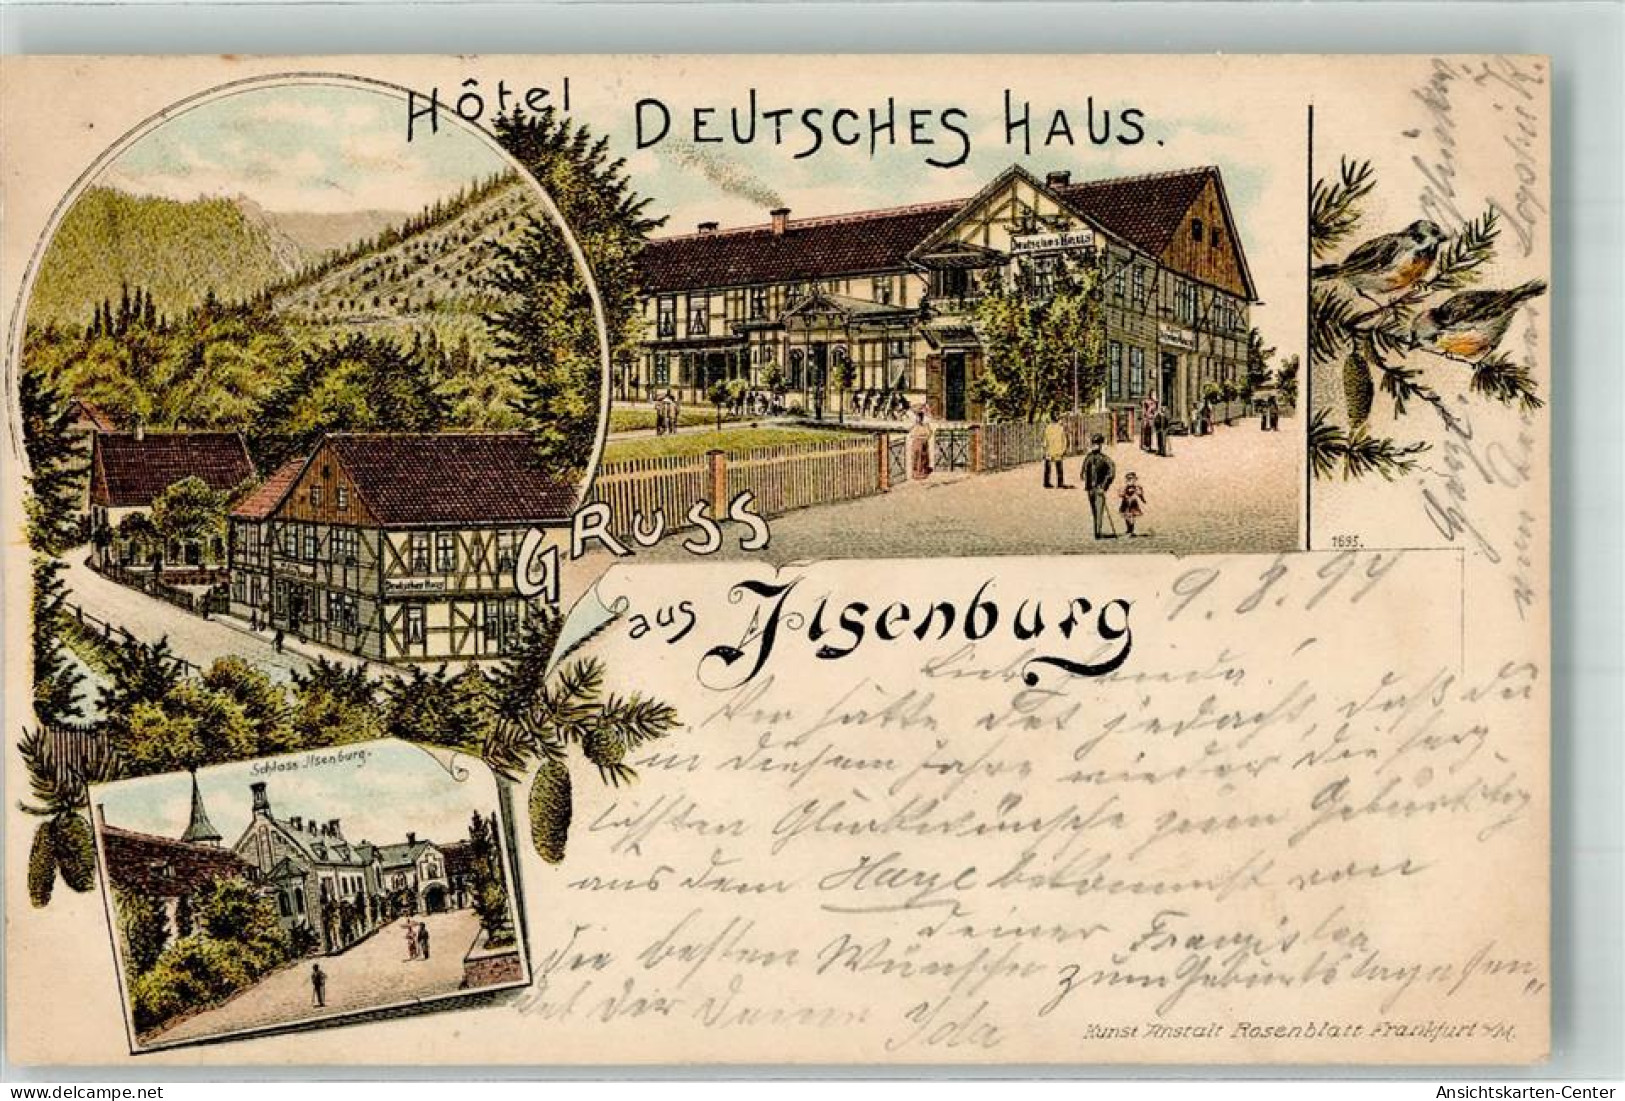 Hôtel DEUTSCHES HAUS.
Deutsches Haus
Deutsches Haus
GRUSS
aus Ilsenburg
1695.
Schloss Ilsenburg.
9. 8. 94
Liebe Frieda!
Wer hätte das gedacht, daß du
in diesem Jahre wieder die herz-
lichsten Glückwünsche zum Geburtstag
aus dem Harze bekommst von
deiner Franziska
Die besten Wünsche zum Geburtstage sen-
det dir Deine Ida
Kunst Anstalt Rosenblatt Frankfurt a/M.
Ansichtskarten-Center